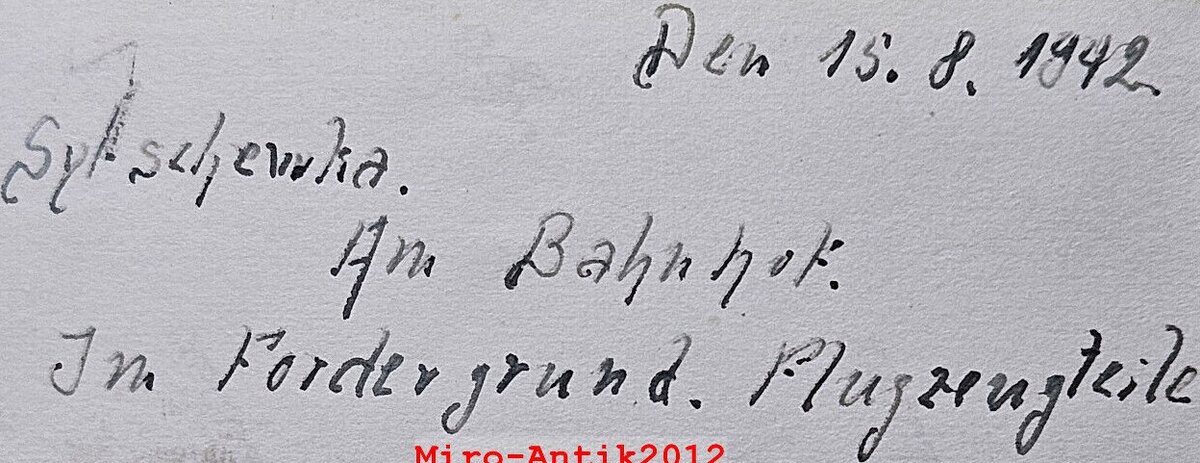 Den 15. 8. 1942.
Sytschewka.
Am Bahnhof.
Im Fordergrund. Flugzeugteile
Miro-Antik2012